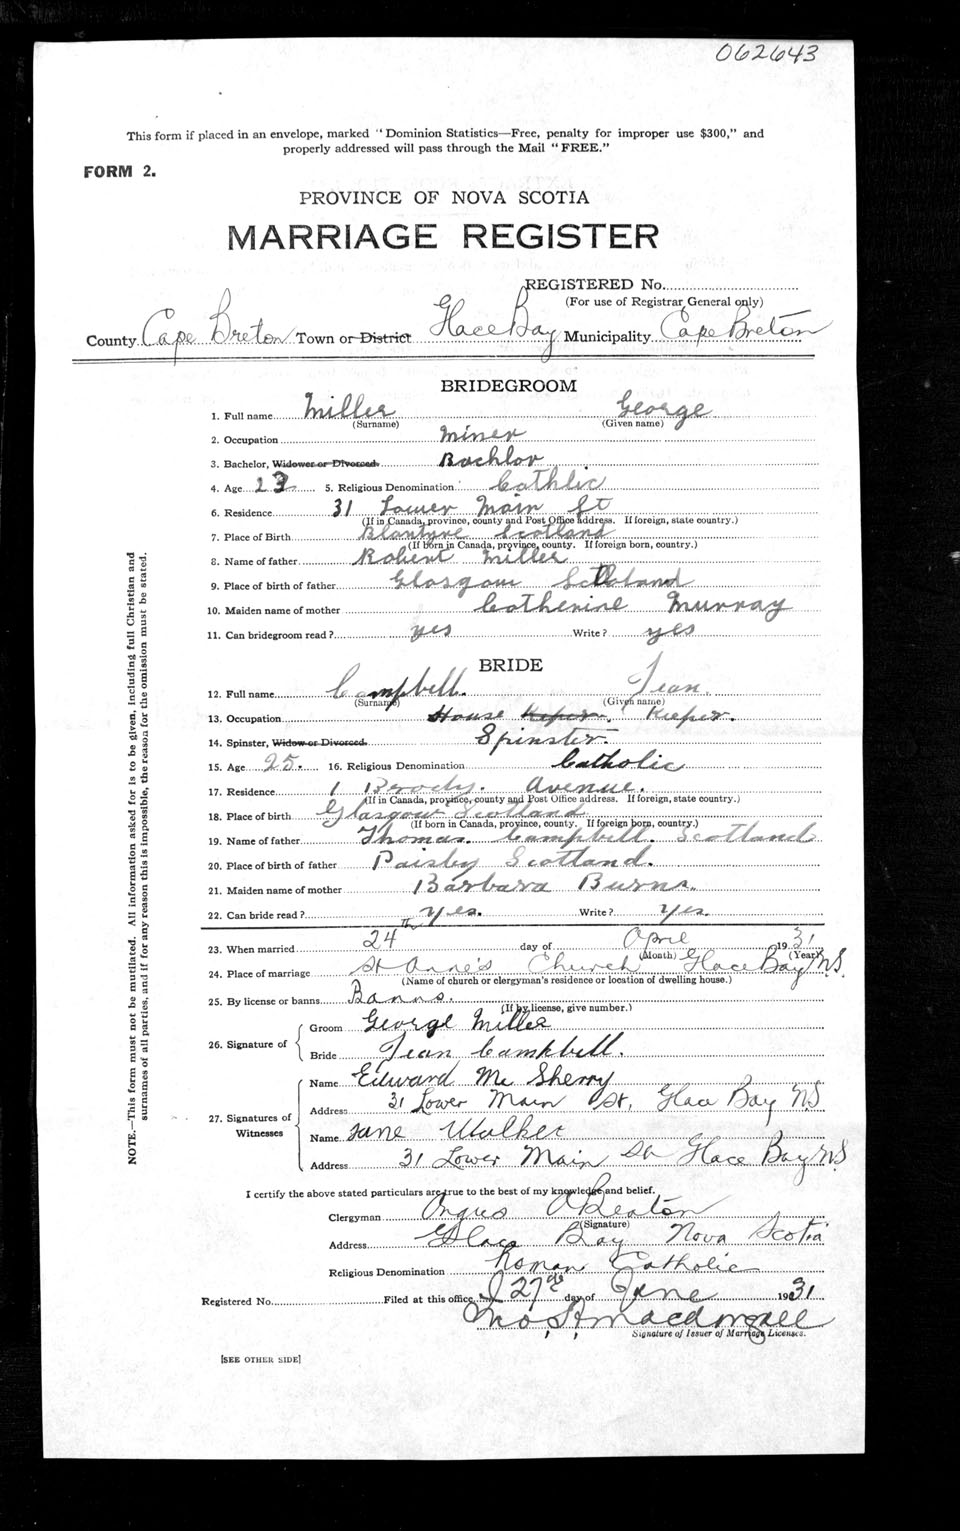 062643
This form if placed in an envelope, marked "Dominion Statistics—Free, penalty for improper use $300," and
properly addressed will pass through the Mail "FREE."
FORM 2.
PROVINCE OF NOVA SCOTIA
MARRIAGE REGISTER
REGISTERED No.
(For use of Registrar General only)
County Cape Breton Town or District Glace Bay Municipality Cape Breton
BRIDEGROOM
1. Full name Miller George
(Surname) (Given name)
2. Occupation Miner
3. Bachelor, Widower or Divorced. Bachlor
4. Age 23 5. Religious Denomination Cathlic
6. Residence 31 Lower Main St
(If in Canada, province, county and Post Office address. If foreign, state country.)
7. Place of Birth Blantyre Scotland
(If born in Canada, province, county. If foreign born, country.)
8. Name of father Robert Miller
9. Place of birth of father Glasgow Scotland
10. Maiden name of mother Catherine Murray
11. Can bridegroom read? yes Write? yes
BRIDE
12. Full name Campbell. Jean.
(Surname) (Given name)
13. Occupation House Keper. Kieper.
14. Spinster, Widow or Divorced. Spinster.
15. Age 25. 16. Religious Denomination Catholic
17. Residence 1 Brody. Avenue.
(If in Canada, province, county and Post Office address. If foreign, state country.)
18. Place of birth Glasgow Scotland
(If born in Canada, province, county. If foreign born, country.)
19. Name of father Thomas. Campbell. Scotland
20. Place of birth of father Paisley Scotland.
21. Maiden name of mother Barbara Burns.
22. Can bride read? Yes. Write? Yes.
23. When married 24th day of April 1931
(Month) (Year)
24. Place of marriage St Anne's Church Glace Bay N.S.
(Name of church or clergyman's residence or location of dwelling house.)
25. By license or banns Banns.
(If by license, give number.)
26. Signature of
Groom George Miller
Bride Jean Campbell.
27. Signatures of Witnesses
Name Edward Mc Sherry
Address 31 Lower Main St, Glace Bay N.S
Name Jane Walker
Address 31 Lower Main St Glace Bay N.S
I certify the above stated particulars are true to the best of my knowledge and belief.
Clergyman Angus A Beaton
(Signature)
Address Glace Bay Nova Scotia
Religious Denomination Roman Catholic
Registered No. Filed at this office 27 day of June 1931
Jno. St. Macdougall
Signature of Issuer of Marriage Licenses.
[SEE OTHER SIDE]
NOTE.—This form must not be mutilated. All information asked for is to be given, including full Christian and
surnames of all parties, and if for any reason this is impossible, the reason for the omission must be stated.